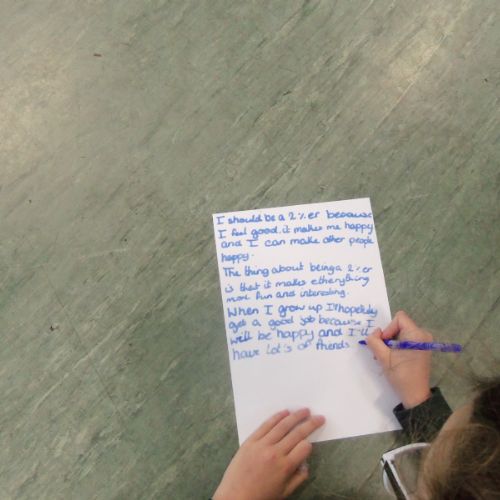 I should be a 2%er because
I feel good. it makes me happy
and I can make other people
happy.
The thing about being a 2%er
is that it makes etherything
more fun and interesting.
When I grow up I'll hopefuly
get a good job because I
will be happy and I'll
have lot's of friends